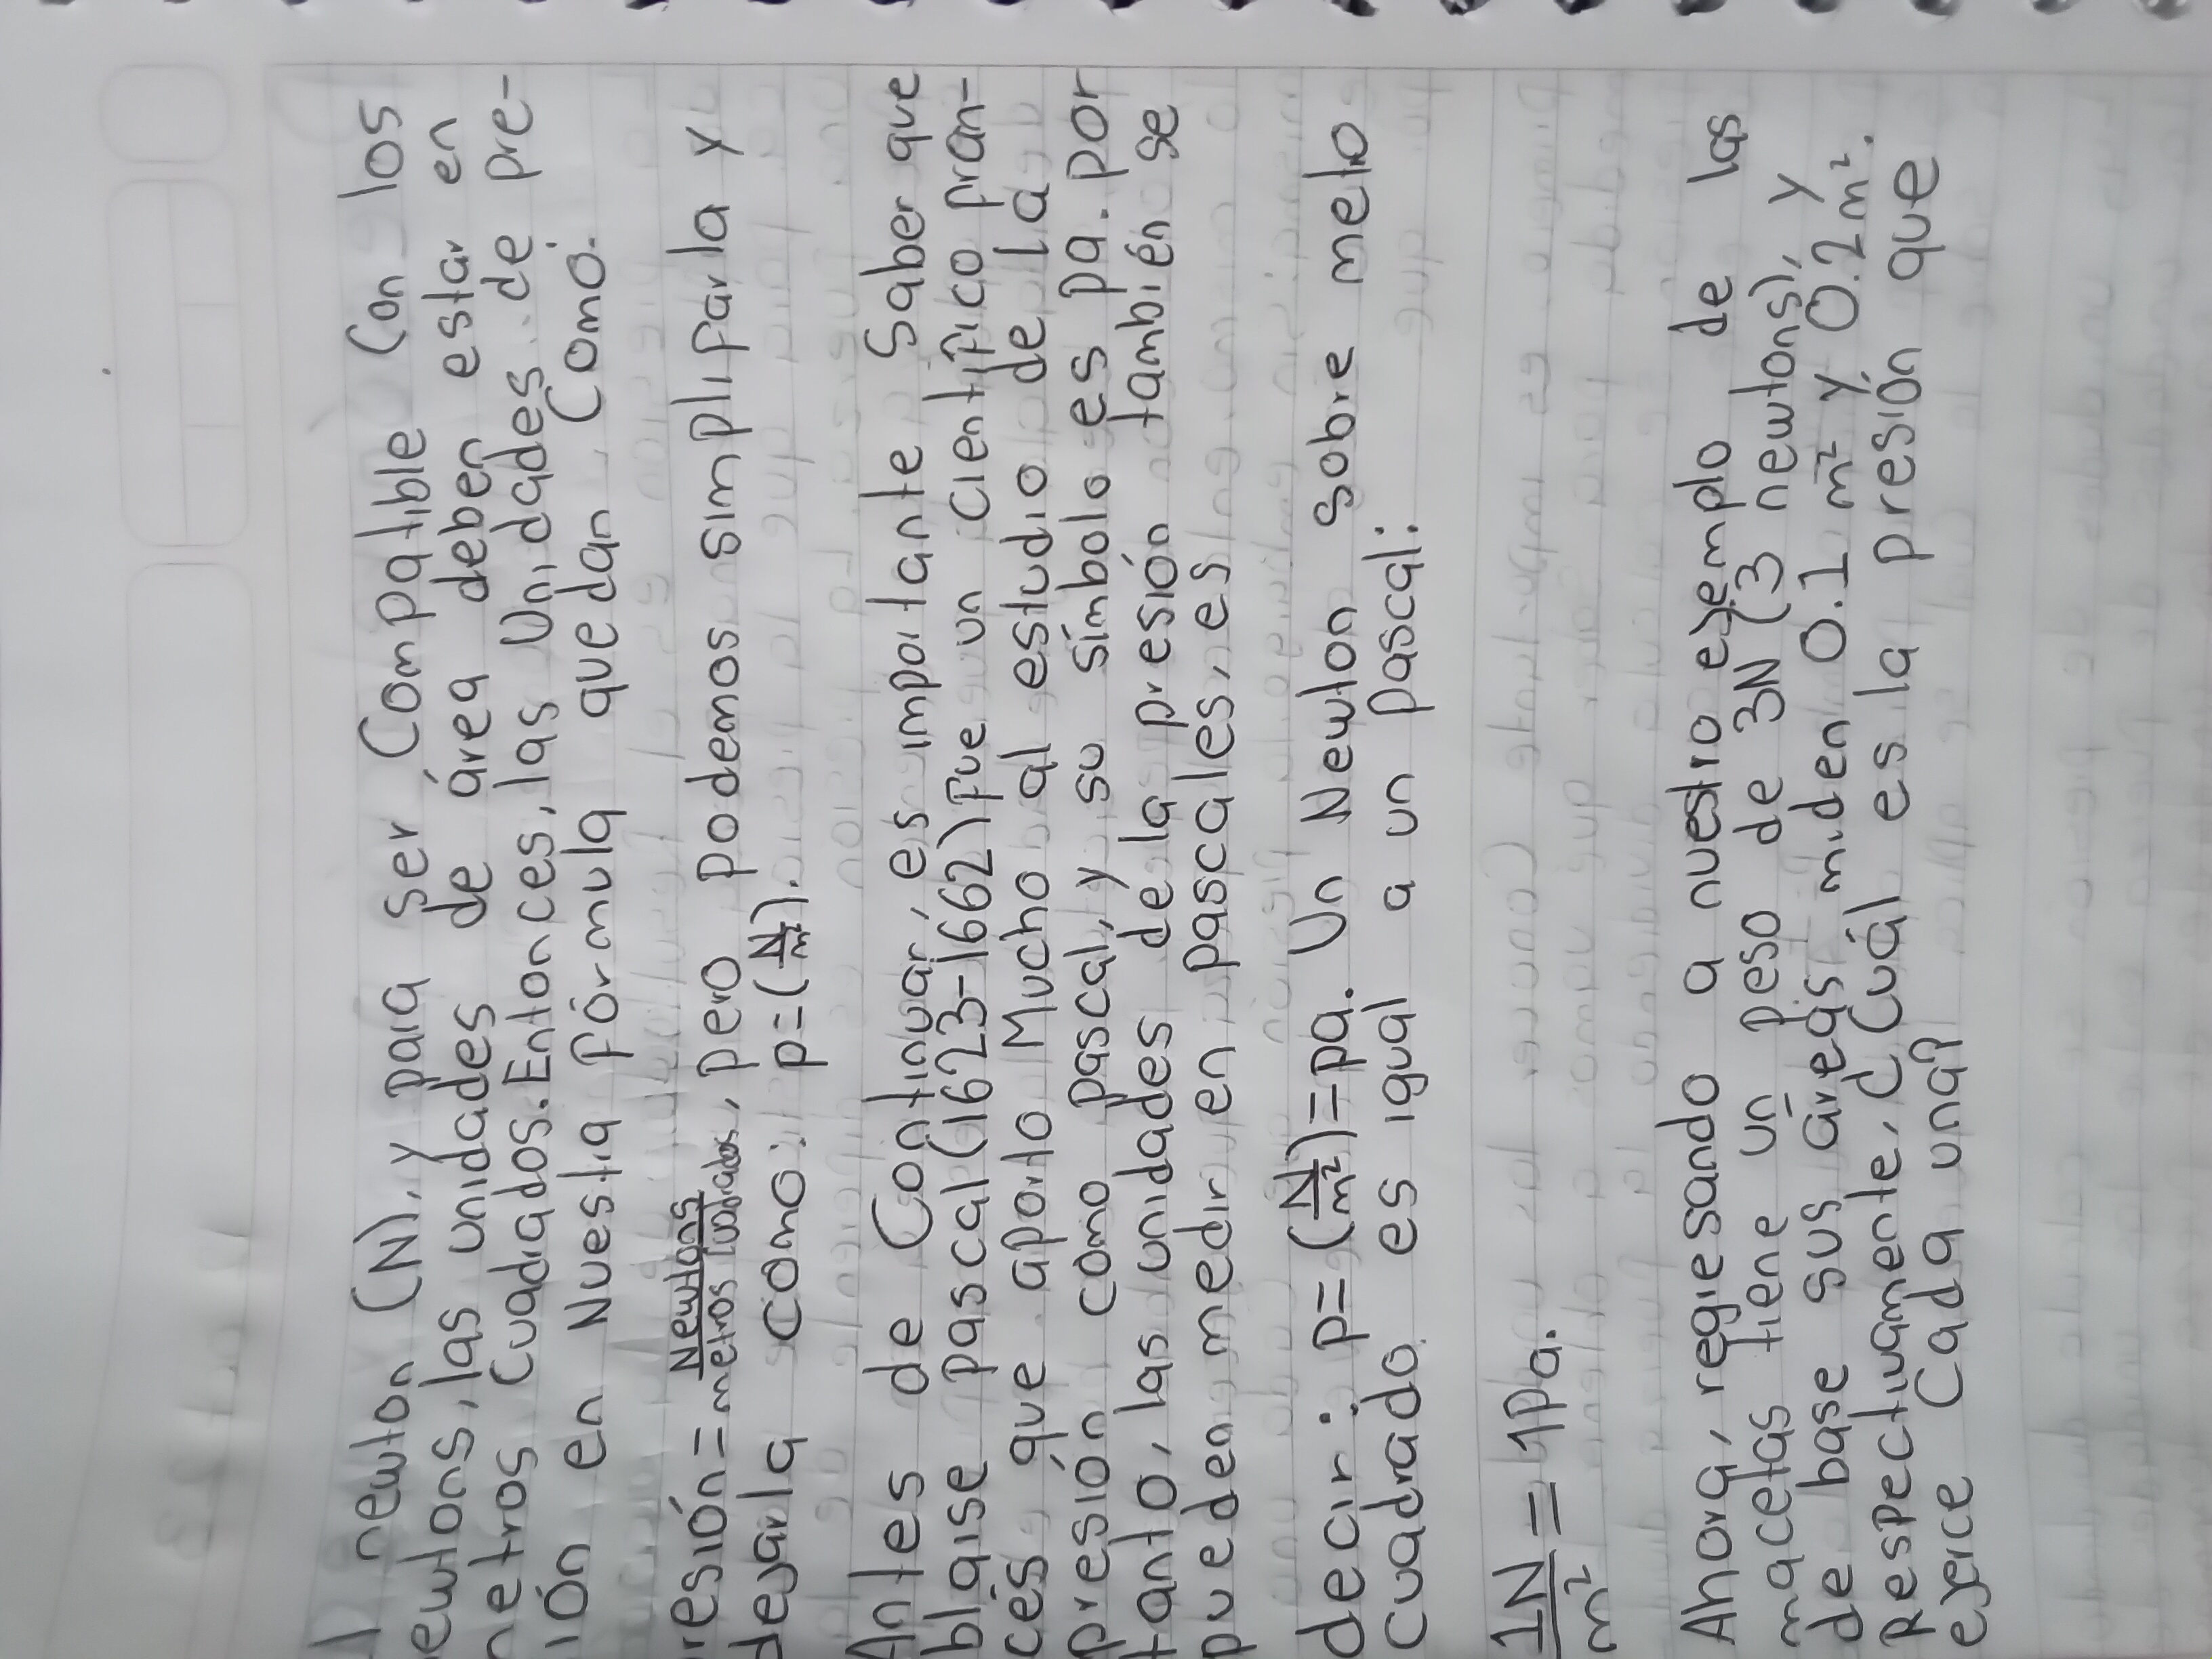 l newton (N), y para ser Compatible Con los
ewtons, las unidades de área deben estar en
netros Cuadrados. Entonces, las Unidades de pre-
ión en Nuestra fórmula quedan Como:
resión = Newtons / metros cuadrados, pero podemos simplifarla y
dejarla como: p=(N/m²).
Antes de Continuar, es importante Saber que
blaise pascal (1623-1662) fue un científico fran-
cés que aporto Mucho al estudio de la
presión como pascal, y su símbolo es pa. por
tanto, las unidades de la presión también se
pueden medir en pascales, es
decir: p= (N/m²)=pa. Un Newton sobre metro
cuadrado es igual a un pascal:
1N/m² = 1pa.
Ahora, regresando a nuestro ejemplo de las
macetas tiene un peso de 3N (3 newtons), y
de base sus áreas miden 0.1 m² y 0.2m².
Respectivamente, ¿Cuál es la presión que
ejerce Cada una?